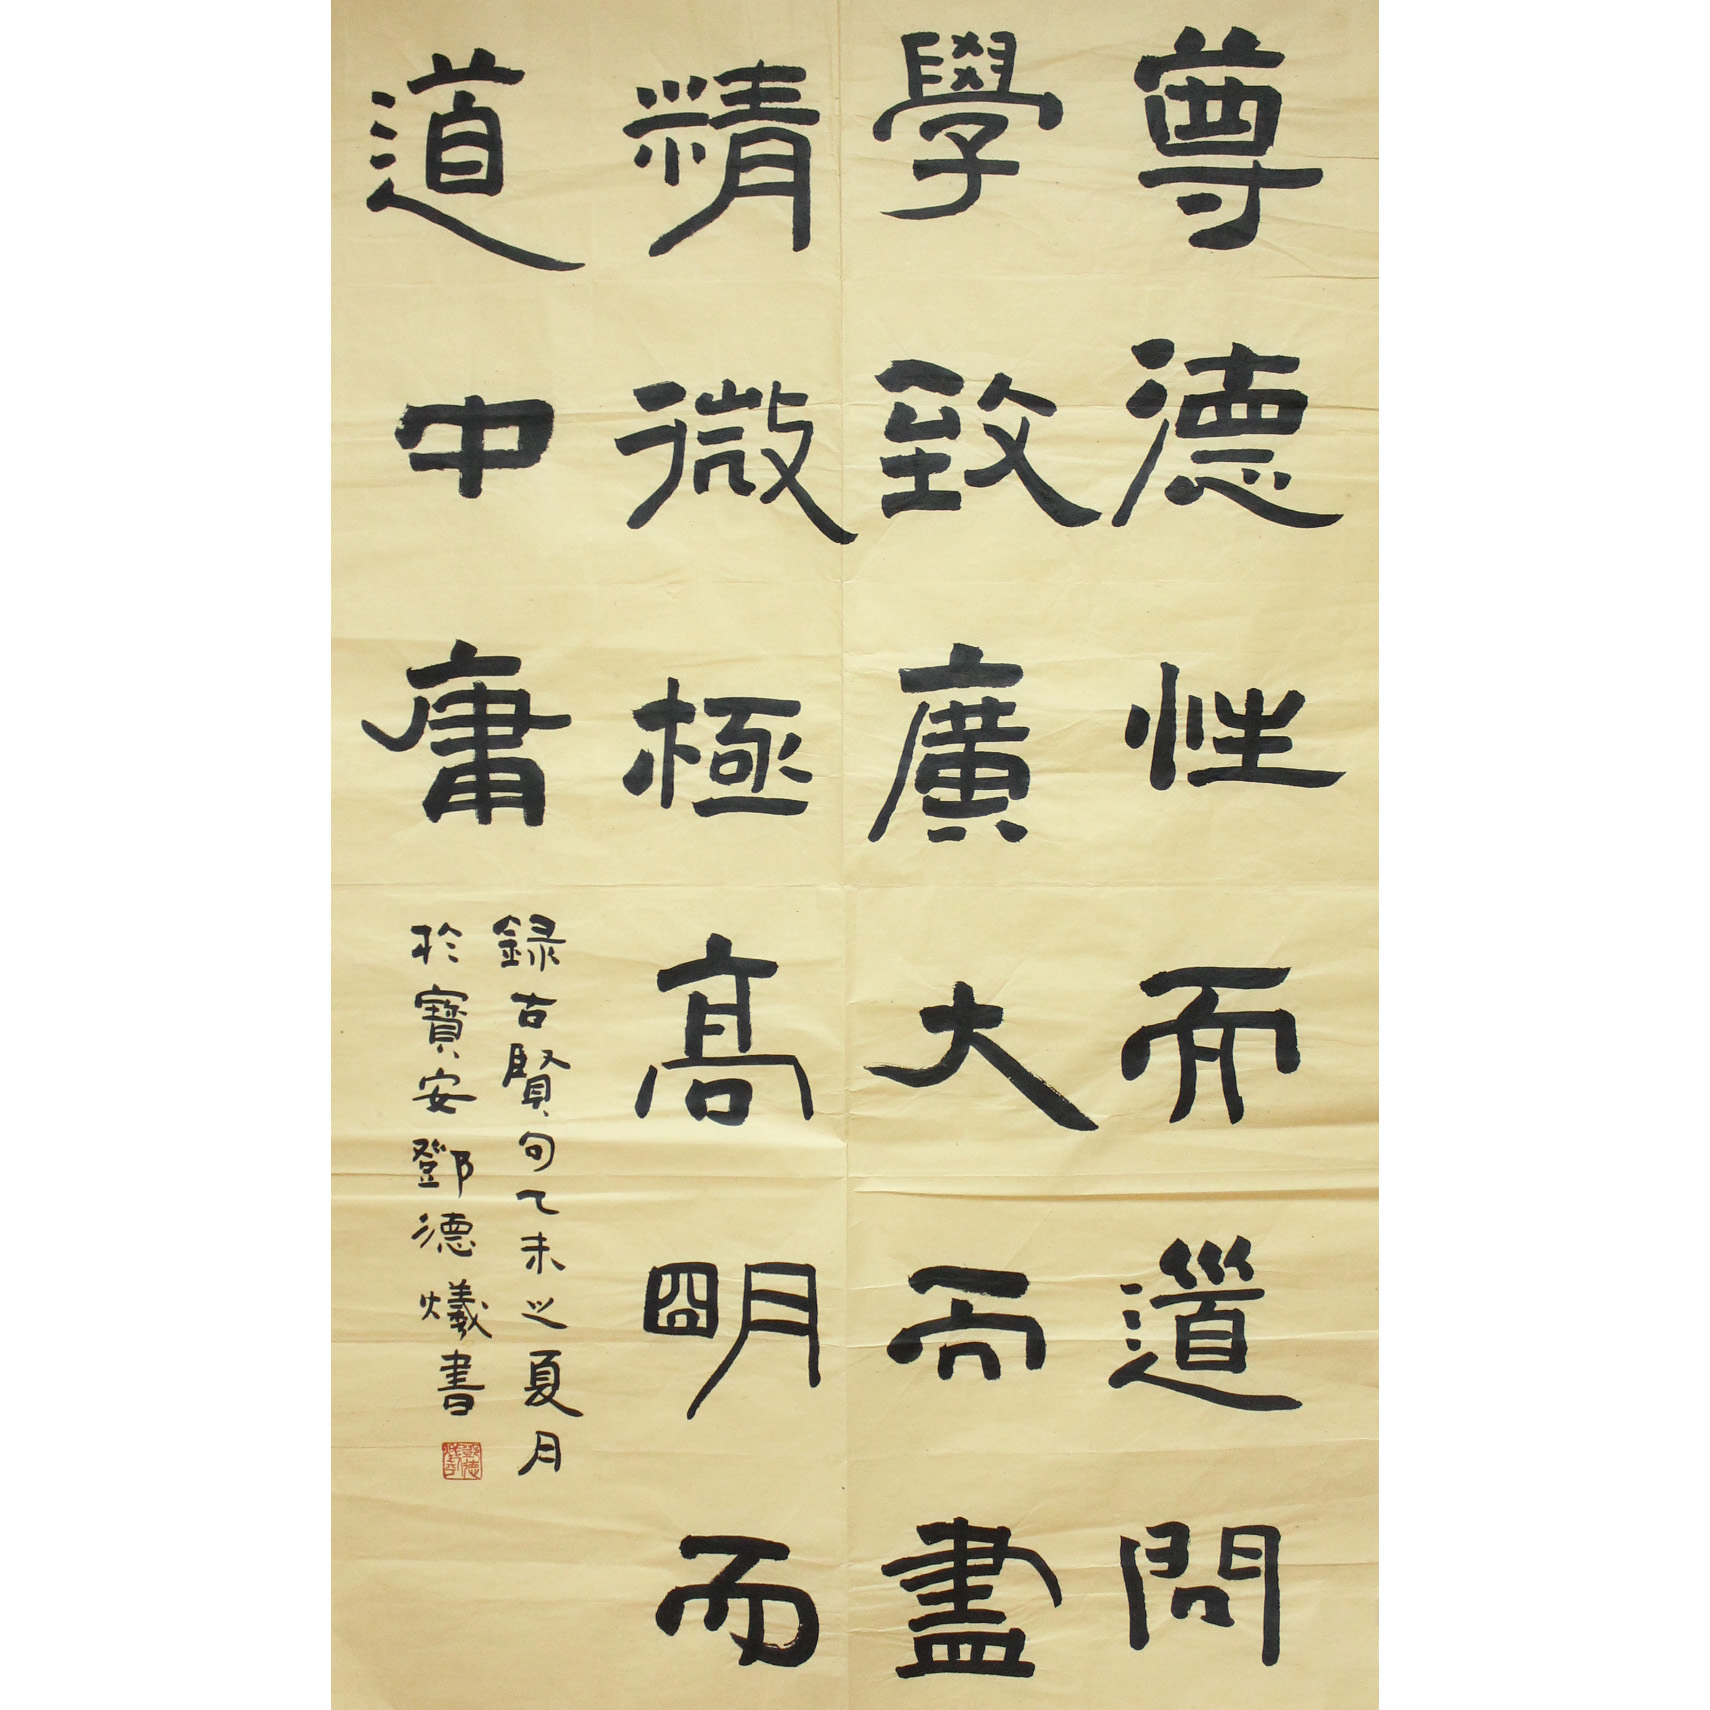 尊德性而道問
學致廣大而盡
精微極高明而
道中庸
録古賢句乙未之夏月
於寶安鄧德燨書